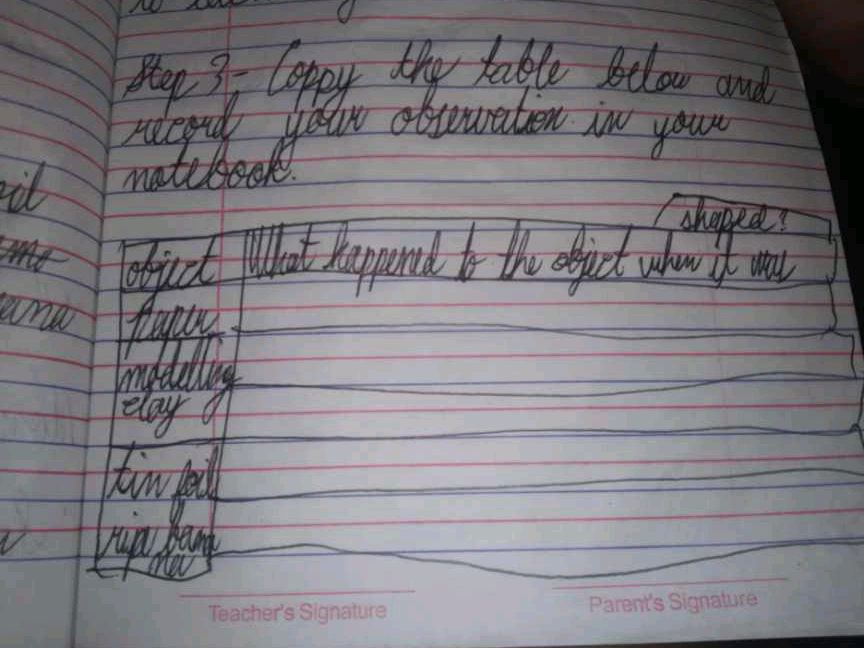 Step 3;- Coppy the table below and
record your observation in your
notebook.
shaped?
object What happened to the object when it was
paper
modelling
clay
tin foil
ripe bana
na
Teacher's Signature Parent's Signature